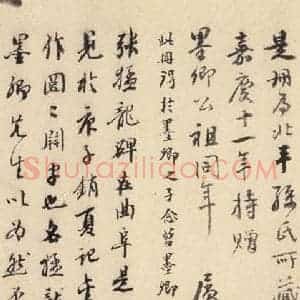 是册为北平孫氏所藏
嘉慶十一年持贈
墨卿公祖同年
此冊得於墨卿子念曾墨卿
張猛龍碑在曲阜是
見於庚子銷夏記
作圖二關字也名猛
墨卿先生以為然
Shufazilida.com